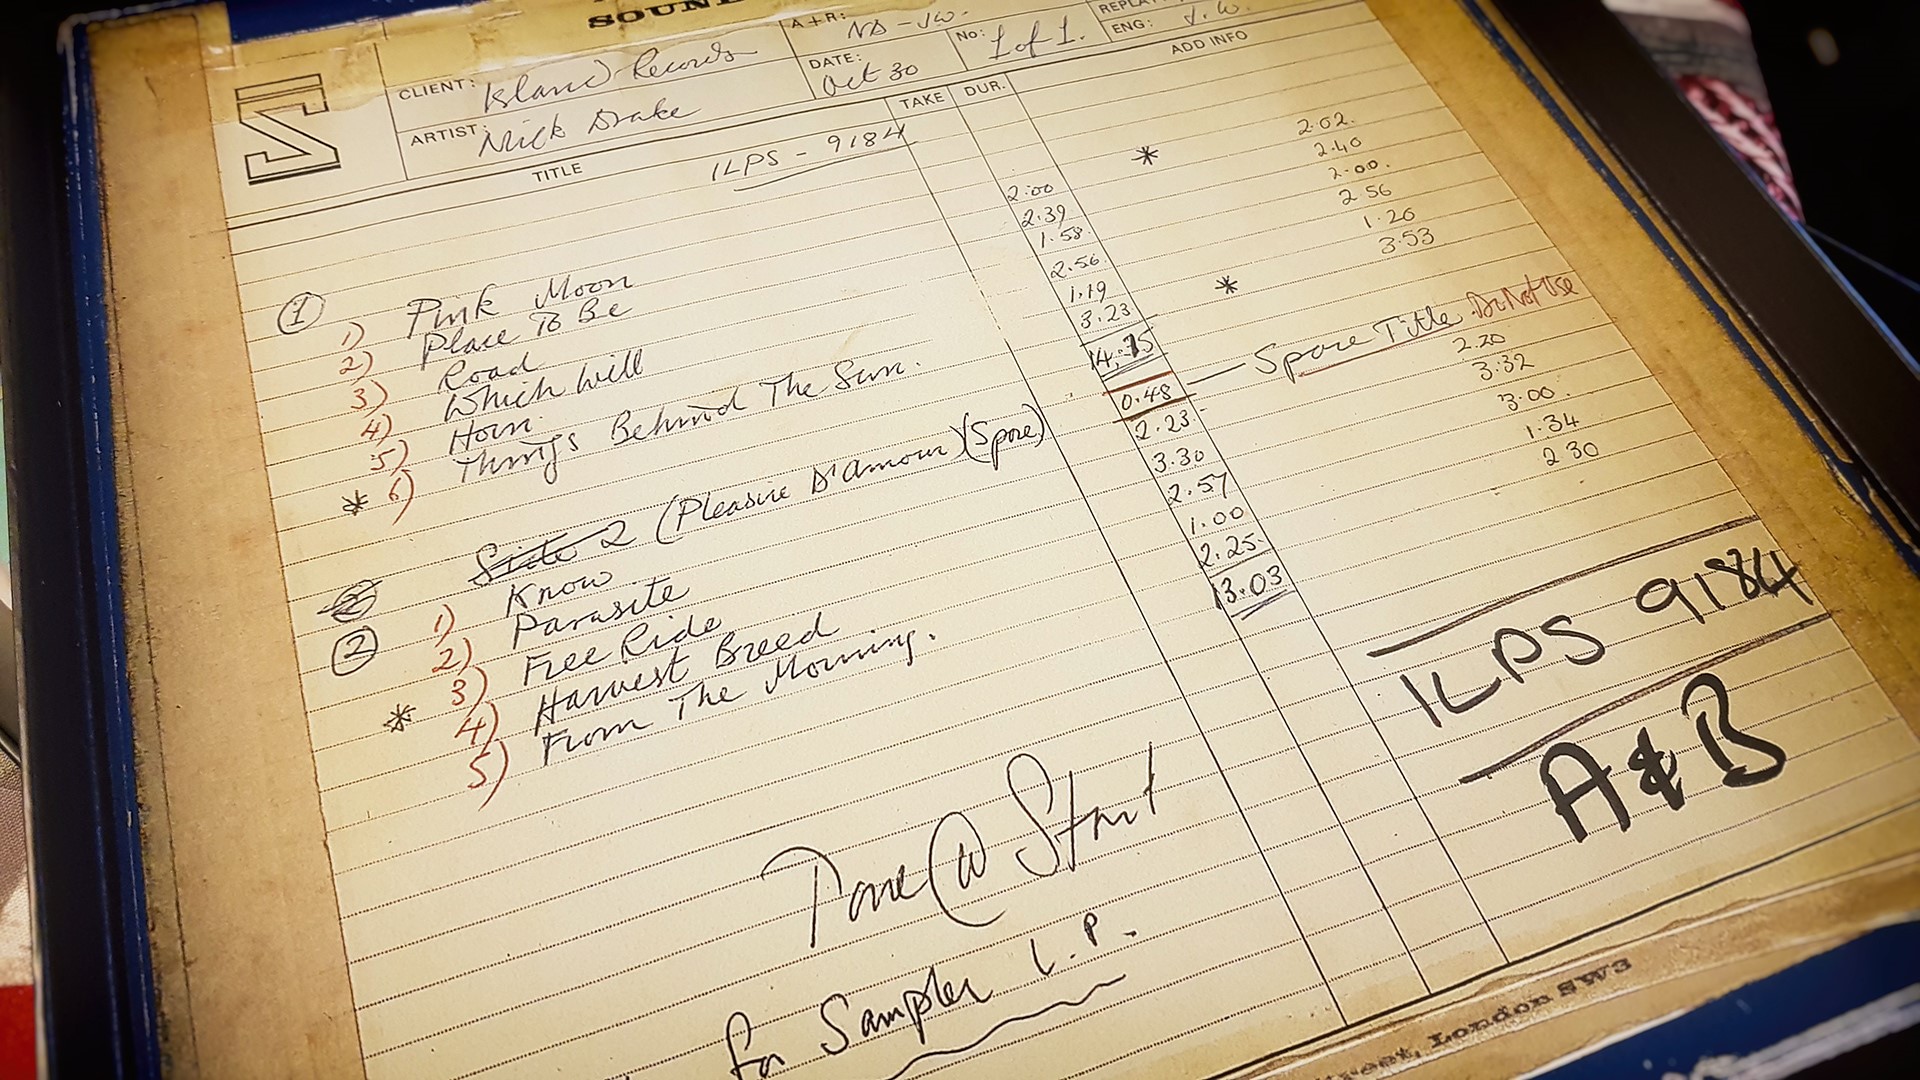 SOUN
CLIENT: Island Records
A+R: ND - JW.
REPLAY
ARTIST: Nick Drake
DATE: Oct 30
No: 1 of 1.
ENG: J.W.
TITLE
TAKE
DUR.
ADD INFO
ILPS - 9184
1
1) Pink Moon 2:00 * 2.02.
2) Place To Be 2.39 2.40
3) Road 1.58 2.00.
4) Which Will 2.56 2 56
5) Horn 1.19 1.20
* 6) Things Behind The Sun. 3.23 * 3.53
14.15
Side 2 (Pleasure D'amour) (Spare) 0.48 Spare Title. Do Not Use
2
1) Know 2.23 2.20
2) Parasite 3.30 3.32
3) Free Ride 2.57 3.00.
* 4) Harvest Breed 1.00 1.34
5) From The Morning. 2.25 2 30
13.03
ILPS 9184
A & B
Tone @ Start
for Sampler L.P.
treet, London SW3